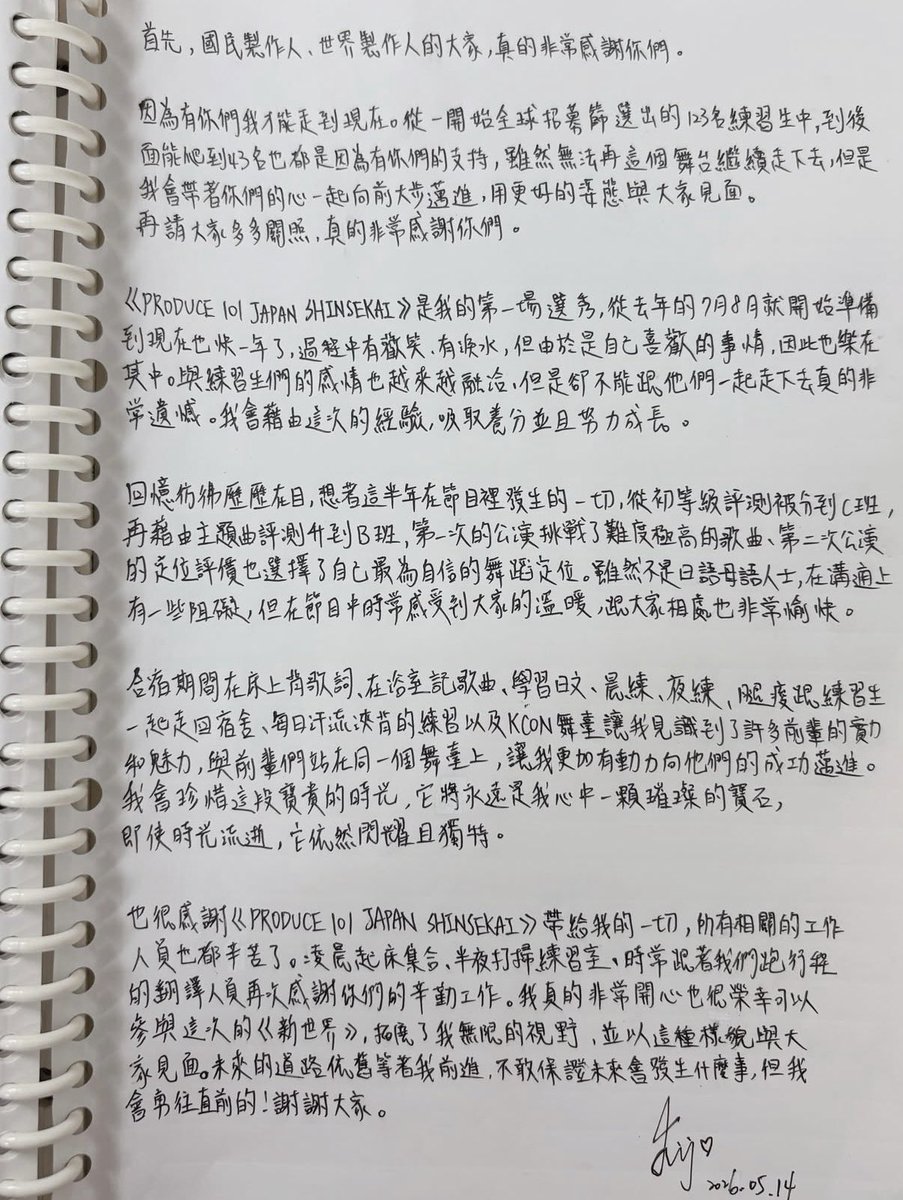 首先，國民製作人、世界製作人的大家，真的非常感謝你們。
因為有你們我才能走到現在。從一開始全球招募篩選出的123名練習生中，到後
面能爬到43名也都是因為有你們的支持，雖然無法再這個舞台繼續走下去，但是
我會帶著你們的心一起向前大步邁進，用更好的姿態與大家見面。
再請大家多多關照，真的非常感謝你們。
《PRODUCE 101 JAPAN SHINSEKAI》是我的第一場選秀，從去年的7月8月就開始準備
到現在也快一年了，過程中有歡笑、有淚水，但由於是自己喜歡的事情，因此也樂在
其中。與練習生們的感情也越來越融洽，但是卻不能跟他們一起走下去真的非
常遺憾。我會藉由這次的經驗，吸取養分並且努力成長。
回憶彷彿歷歷在目，想著這半年在節目裡發生的一切，從初等級評測被分到C班，
再藉由主題曲評測升到B班，第一次的公演挑戰了難度極高的歌曲、第二次公演
的定位評價也選擇了自己最為自信的舞蹈定位。雖然不是日語母語人士，在溝通上
有一些阻礙，但在節目中時常感受到大家的溫暖，跟大家相處也非常愉快。
合宿期間在床上背歌詞、在浴室記歌曲、學習日文、晨練、夜練、腿痠跟練習生
一起走回宿舍、每日汗流浹背的練習以及KCON舞臺讓我見識到了許多前輩的實力
和魅力，與前輩們站在同一個舞臺上，讓我更加有動力向他們的成功邁進。
我會珍惜這段寶貴的時光，它將永遠是我心中一顆璀璨的寶石，
即使時光流逝，它依然閃耀且獨特。
也很感謝《PRODUCE 101 JAPAN SHINSEKAI》帶給我的一切，所有相關的工作
人員也都辛苦了。凌晨起床集合、半夜打掃練習室、時常跟著我們跑行程
的翻譯人員再次感謝你們的辛勤工作。我真的非常開心也很榮幸可以
參與這次的《新世界》，拓展了我無限的視野，並以這種樣貌與大
家見面。未來的道路依舊等著我前進，不敢保證未來會發生什麼事，但我
會勇往直前的！謝謝大家。
2026.05.14